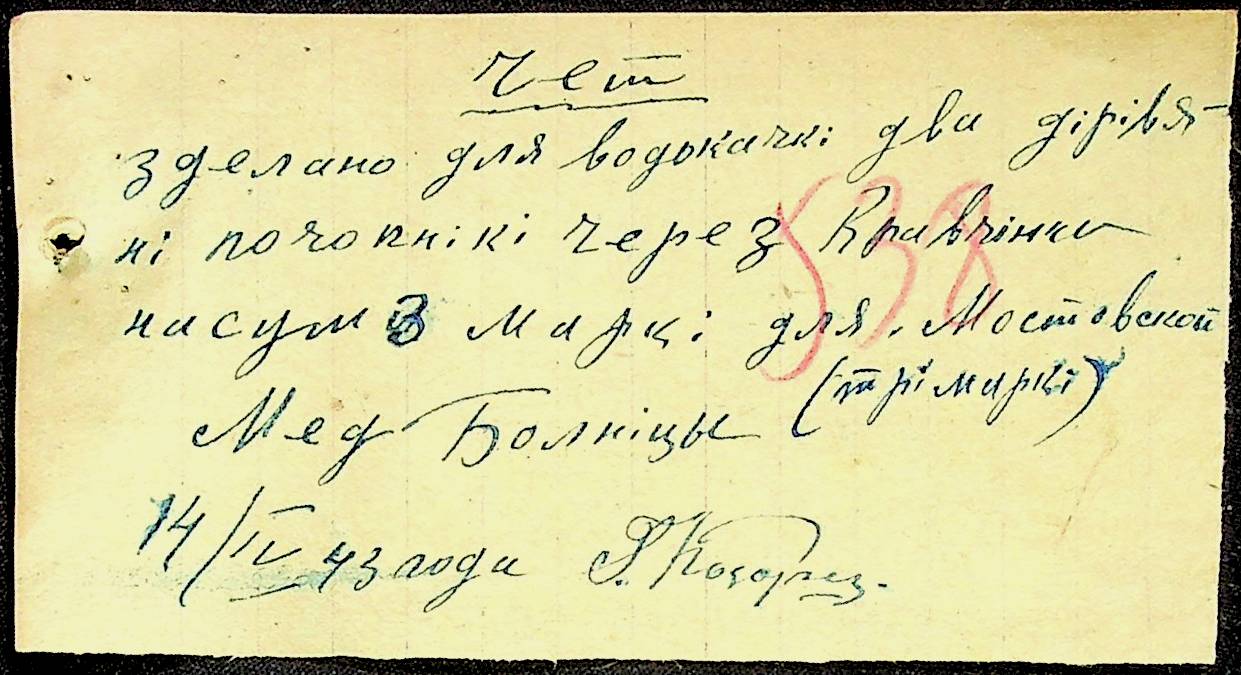 Чет
зделано для водокачкі два дірівя
ні почопнікі через Кравчінка
насум 3 маркі для Мостовской
(трі маркі)
Мед Болніцы
14/IV 43 года Ф.
538